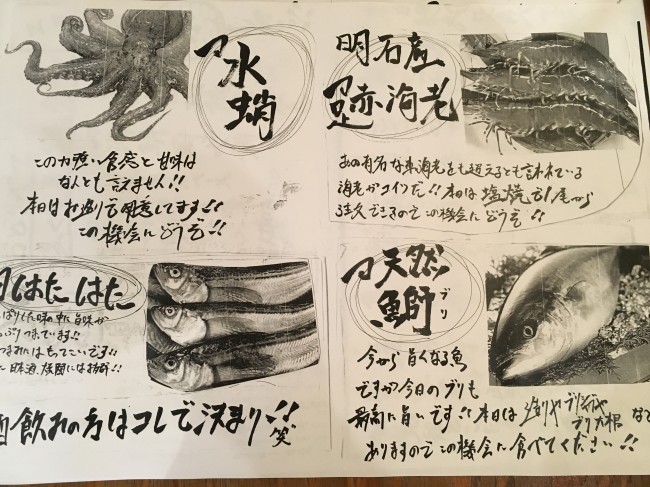 水
蛸
この力強い食感と甘味は
なんとも言えません!!
本日はお造りで用意してます!!
この機会にどうぞ!!
明石産
赤海老
あの有名な車海老をも超えるとも言われている
海老がコイツだ!!本日は塩焼で1尾から
注文できるのでこの機会にどうぞ!!
はた はた
ぱりした味の中に旨味が
っぷりつまています!!
つまみにはもってこいです!!
日本酒、
酒飲みの方はコレで決まり!!
笑
天然
鰤
ブリ
今から旨くなる魚
ですが今日のブリも
最高に旨いです!!本日は造りやブリ
ブリ大根など
ありますのでこの機会に食べてください!!